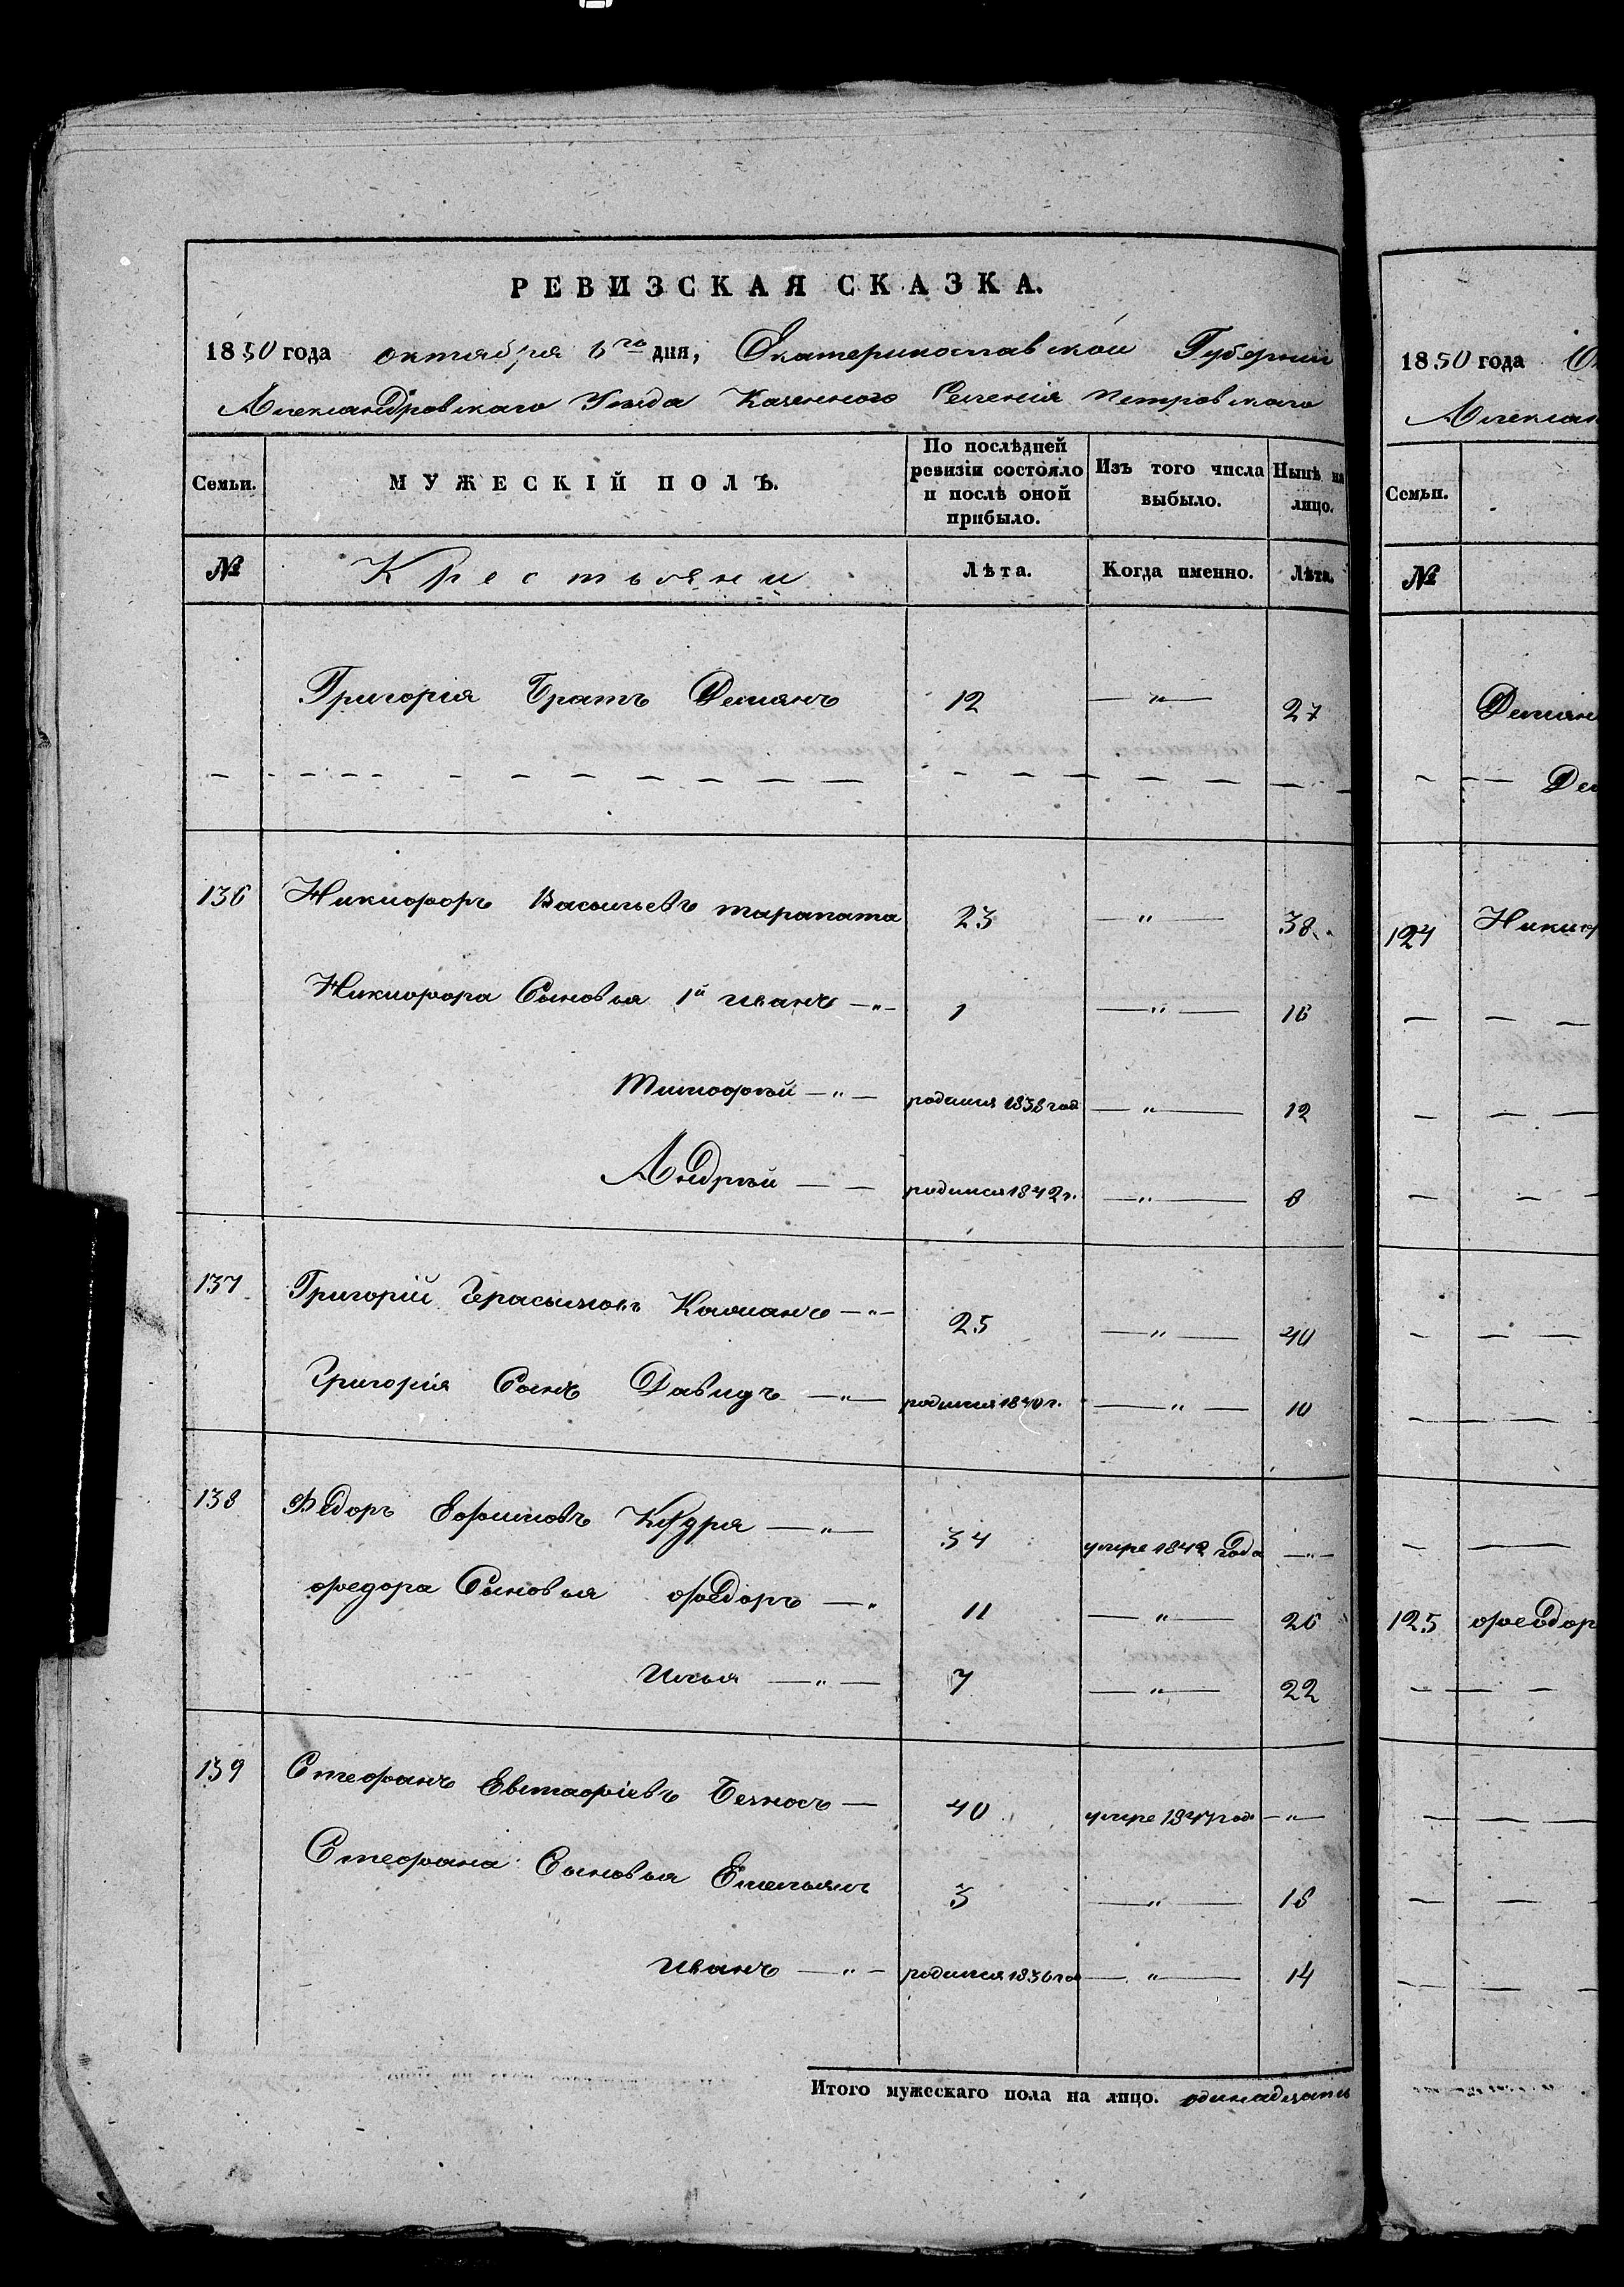 РЕВИЗСКАЯ СКАЗКА.
1850 года октября 6го дня, Екатеринославской Губернии
Александровскаго Уезда Казенного Селенія Петровскаго
Семьи.
МУЖЕСКІЙ ПОЛЪ.
По послѣдней ревизіи состояло и послѣ оной прибыло.
Изъ того числа выбыло.
Нынѣ на лицо.
№ Крестьяни Лѣта. Когда именно. Лѣта.
Григорія Братъ Демянъ 12 — " — 27
136 Никифоръ Васильевъ тарапата 23 — " — 38
Никифора Сыновья 1й иванъ — " — 1 — " — 16
Тимофѣй — " — родился 1838 год — " — 12
Андрѣй — — родился 1842 г. — " — 8
137 Григорій Герасимовъ Калианъ — " — 25 — " — 40
Григорія Сынъ Давидъ — " — родился 1840 г. — " — 10
138 Федоръ Ефимовъ Кудря — " — 34 умре 1842 года — " —
федора Сыновья федоръ — " 11 — " — 26
Илья — " — 7 — " — 22
139 Стефанъ Евстафіевъ Безносъ — 40 умре 1847 год — " —
Стефана Сыновья Емельянъ 3 — " — 18
иванъ — " — родился 1836 го — " — 14
Итого мужескаго пола на лицо. одинадцать
1850 года
Алексан
Семьи.
№
Демян
Де
124 Никиф
125 федор